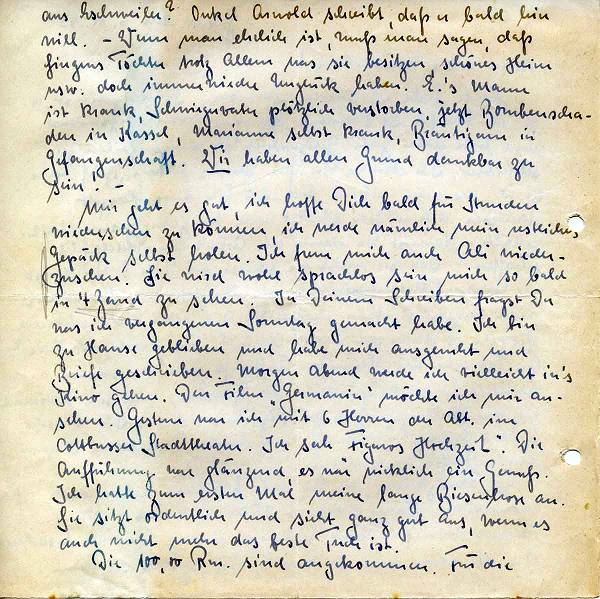 aus Eschweiler? Onkel Arnold schreibt, daß er bald hin
will. - Wenn man ehrlich ist, muß man sagen, daß
Töchter trotz Allem was sie besitzen, schönes Heim
usw. doch immerwieder Unglück haben. E.'s Mann
ist krank, Schwiegervater plötzlich verstorben, jetzt Bombenscha-
den in Kassel, Marianne selbst krank, Bräutigam in
Gefangenschaft. Wir haben allen Grund dankbar zu
sein! -
Mir geht es gut, ich hoffe Dich bald für Stunden
wiedersehen zu können, ich werde nämlich mein restliches
Gepäck selbst holen. Ich freue mich auch Ali wieder-
zusehen. Sie wird wohl sprachlos sein mich so bald
in 4 zu sehen. In Deinem Schreiben fragst Du
was ich vergangenen Sonntag gemacht habe. Ich bin
zu Hause geblieben und habe mich ausgeruht und
Briefe geschrieben. Morgen Abend werde ich vielleicht in's
Kino gehen. Den Film "Germanin" möchte ich mir an-
sehen. Gestern war ich mit 6 Herren der Abt. im
Cottbusser Stadttheater. Ich sah "Figaros Hochzeit". Die
Aufführung war glänzend, es war wirklich ein Genuß.
Ich hatte zum ersten Mal meine lange Biesenhose an.
Sie sitzt ordentlich und sieht ganz gut aus, wenn es
auch nicht mehr das beste Tuch ist.
Die 100,00 Rm. sind angekommen. Für die